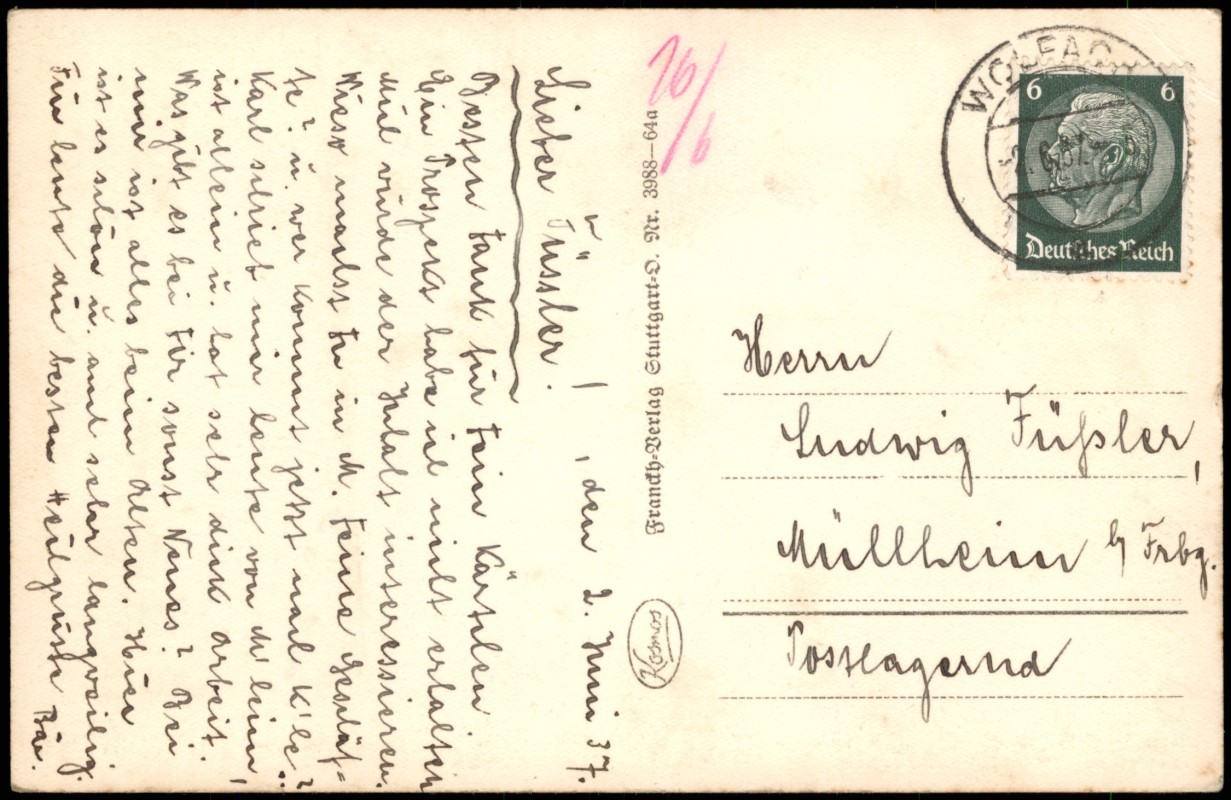 W , den 2. Juni 37.
Lieber Füssler!
Besten Dank für Dein Kärtchen
Ein Prospekt habe ich nicht erhalten
Mich würde der Inhalt interessieren.
Wieso machst Du in M. Deine Geschäf-
te? u. wer kommt jetzt nach K'he?
Karl schrieb mir heute von M'heim,
ist allein u. hat sehr dick Arbeit.
Was gibt es bei Dir sonst Neues? Bei
mir ist alles beim Alten. Hier
ist es schön u. auch sehr langweilig.
Für heute die besten Heilgrüsse Bär.
26/6
Franckh-Verlag Stuttgart-O. Nr. 3988—64a
Kosmos
WOLFACH
-2.6.37
6 6
Deutsches Reich
Herrn
Ludwig Füßler,
Müllheim b/ Frbg.
Postlagernd